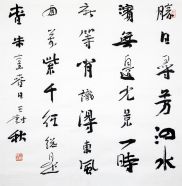 勝日尋芳泗水
濱無邊光景一時
新等閒識得東風
面萬紫千紅總是
春朱熹春日秋